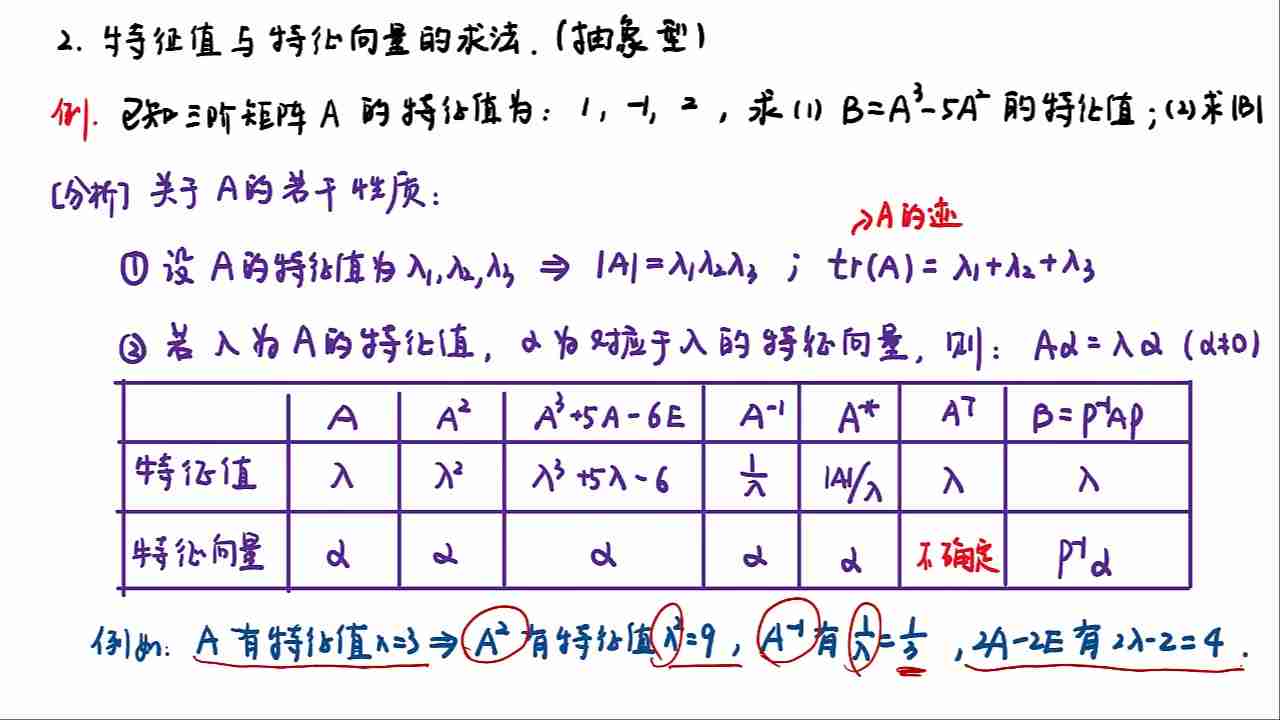 2. 特征值与特征向量的求法.(抽象型)
例. 已知三阶矩阵 A 的特征值为: 1, -1, 2, 求 (1) B=A³-5A² 的特征值; (2) 求|B|
[分析] 关于 A 的若干性质:
→A的迹
① 设 A 的特征值为 λ₁,λ₂,λ₃ ⇒ |A|=λ₁λ₂λ₃ ; tr(A)=λ₁+λ₂+λ₃
② 若 λ 为 A 的特征值, α 为对应于 λ 的特征向量, 则: Aα=λα (α≠0)
A A² A³+5A-6E A⁻¹ A* Aᵀ B=P⁻¹AP
特征值 λ λ² λ³+5λ-6 1/λ |A|/λ λ λ
特征向量 α α α α α 不确定 P⁻¹α
例如: A 有特征值 λ=3 ⇒ A² 有特征值 λ²=9, A⁻¹ 有 1/λ=1/3, 2A-2E 有 2λ-2=4.